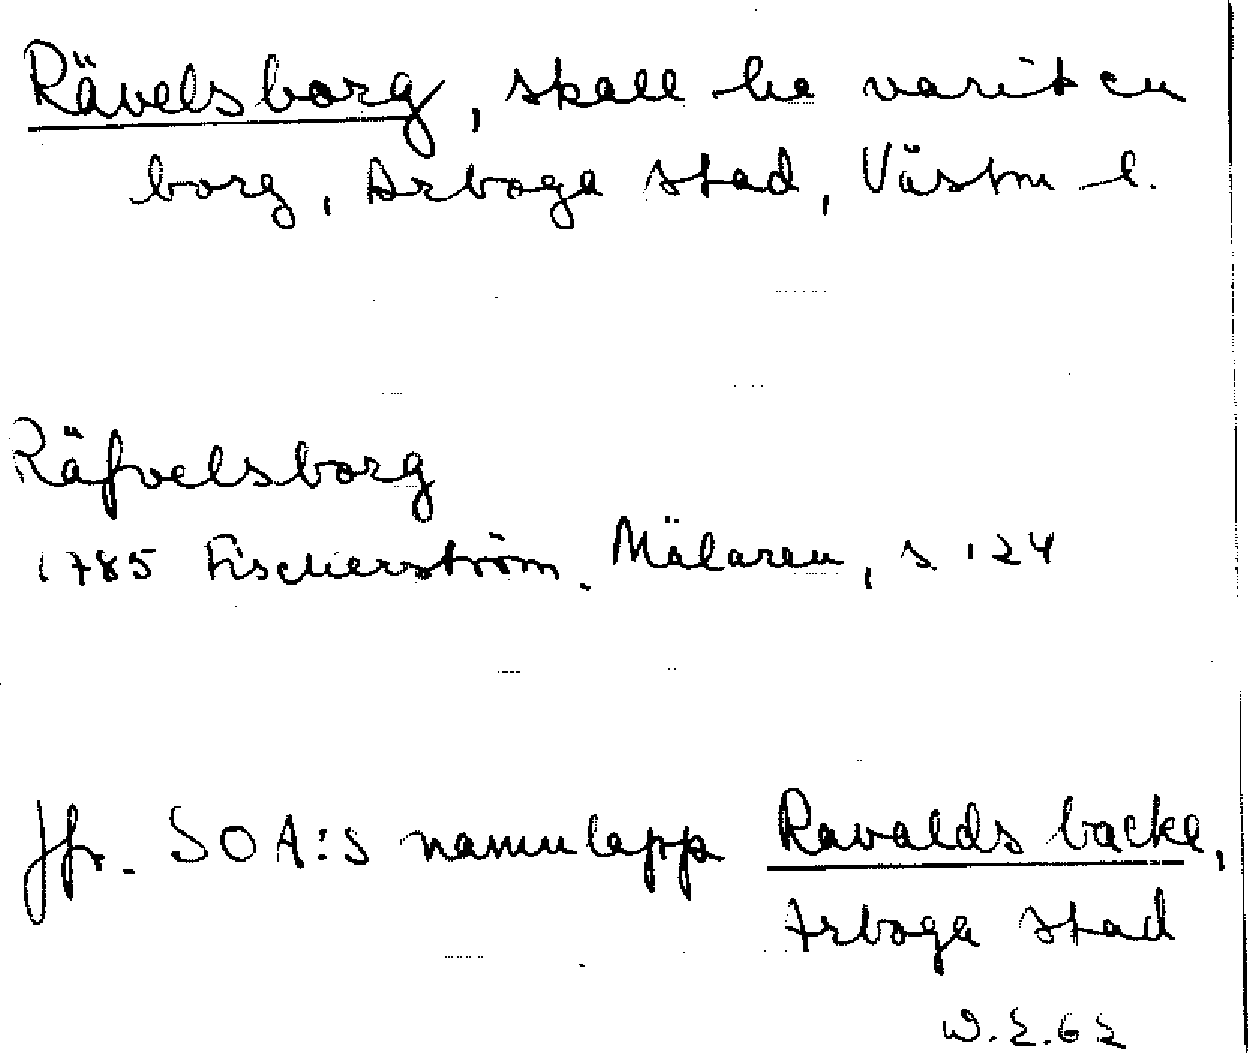 Rävelsborg, skall ha varit en
borg, Arboga stad, Västm l.
Räfvelsborg
1785 Fischerström. Mälaren, s 124
Jfr. SOA:s namnlapp Ravalds backe,
Arboga stad
W.E.62